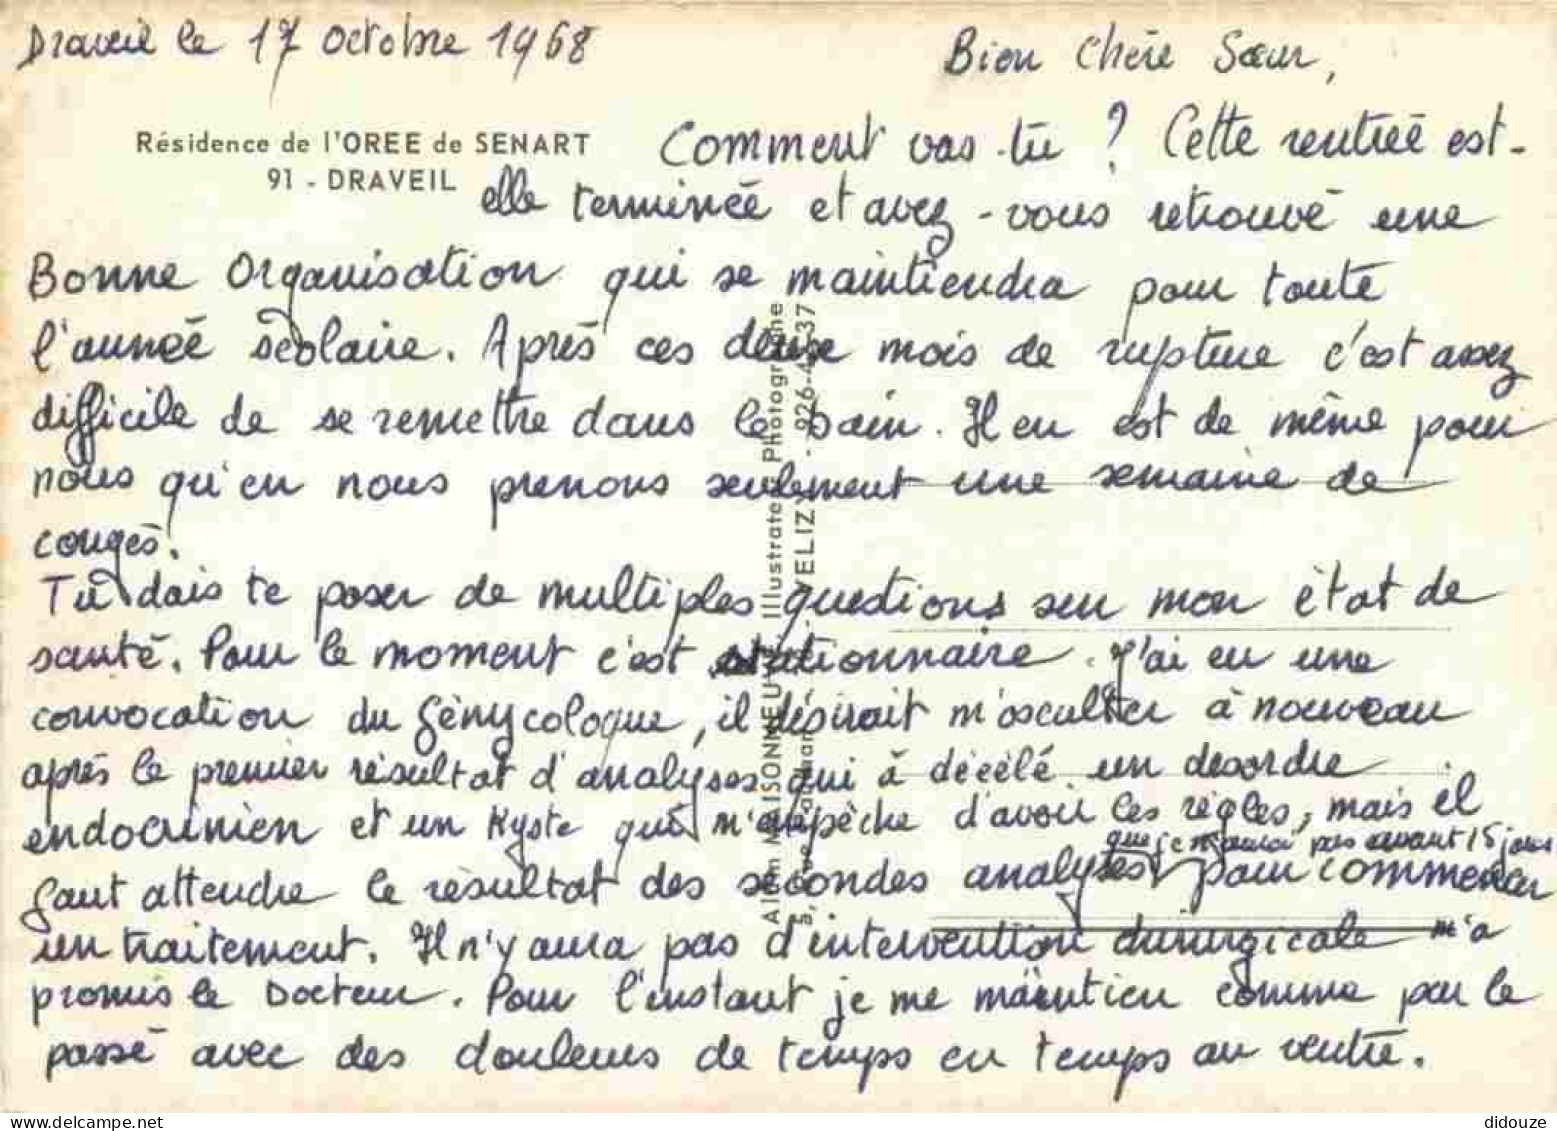 Draveil le 17 Octobre 1968
Bien Chère Sœur,
Résidence de l'OREE de SENART
91 - DRAVEIL
Comment vas-tu ? Cette rentrée est-
elle terminée et avez-vous retrouvé une
Bonne Organisation qui se maintiendra pour toute
l'année scolaire. Après ces deux mois de rupture c'est assez
difficile de se remettre dans le bain. Il en est de même pour
nous qu'en nous prenons seulement une semaine de
congés.
Tu dois te poser de multiples questions sur mon état de
santé. Pour le moment c'est stationnaire. J'ai eu une
convocation du Génycologue, il désirait m'osculter à nouveau
après le premier résultat d'analyses qui à décélé un desordre
endocrinien et un Kyste qui m'empèche d'avoir les règles, mais il
que je n'aurai pas avant 15 jours
faut attendre le résultat des secondes analyses pour commencer
un traitement. Il n'y aura pas d'intervention chirurgicale m'a
promis le Docteur. Pour l'instant je me maintien comme par le
passé avec des douleurs de temps en temps au ventre.
Alain MAISONNEUVE, Illustrateur Photographe
5, rue VELIZY - 926-4 37
didouze